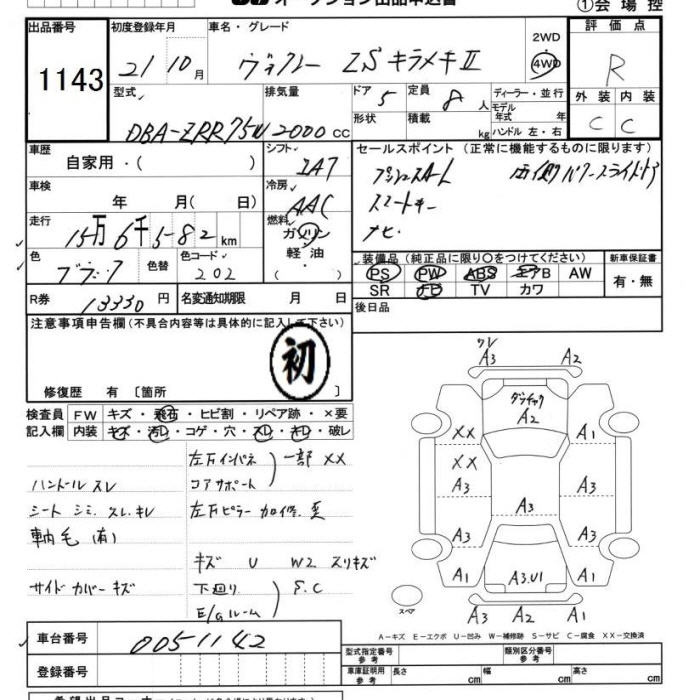 オークション出品申込書
①会場控
出品番号 初度登録年月 車名・グレード 2WD 評価点
1143 21 10月 ヴォクシー ZSキラメキⅡ 4WD R
型式 排気量 ドア 5 定員 8人 ディーラー・並行 外装 内装
DBA-ZRR75W 2000cc 形状 積載 kg モデル年式 年 ハンドル 左・右 C C
車歴 シフト セールスポイント(正常に機能するものに限ります)
自家用・( ) IA7 プッシュスタート 両側パワースライドドア
車検 冷房 スマートキー
年 月( 日) AAC ナビ
走行 燃料
15万6千582km ガソリン
色 色替 色コード 軽油・ 装備品(純正品に限り○をつけてください) 新車保証書
ブラック 202 ( ) PS PW ABS エアB AW 有・無
SR TV カワ
R券 13330円 名変通知期限 月 日 後日品
注意事項申告欄(不具合内容等は具体的に記入して下さい)
初
修復歴 有 〔箇所 〕
検査員 FW キズ・飛石・ヒビ割・リペア跡・×要
記入欄 内装 キズ・汚レ・コゲ・穴・スレ・キレ・破レ
左Fインパネ 一部 XX
ハンドル スレ コアサポート
シート シミ、スレ、キレ 左Fピラー
軸毛(有)
キズ U W2 スリキズ
サイドカバー キズ 下廻り S.C
E/gルーム
ワレ
A3 A2
A2
XX A1
XX
A3 A3 A3
A3 A3
A1 A3.U1 A1
スペア
A3 A2 A1
A-キズ E-エクボ U-凹み W-補修跡 S-サビ C-腐食 XX-交換済
車台番号 0051142
登録番号
型式指定番号 参考 類別区分番号 参考
車庫証明用 参考 長さ cm 幅 cm 高さ cm